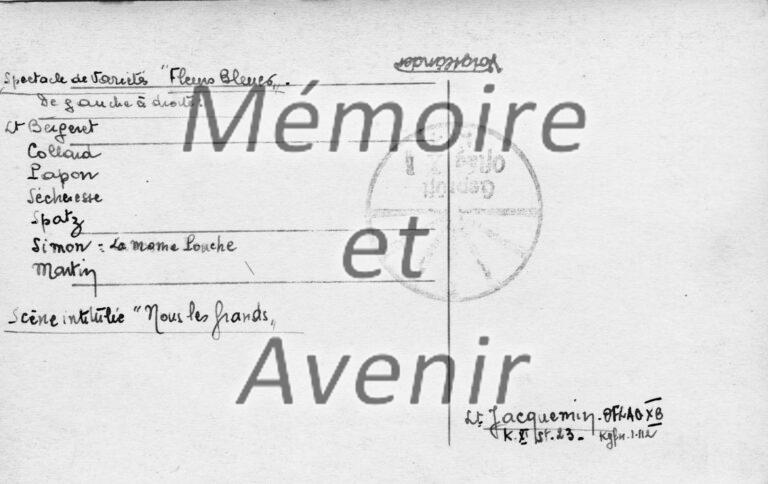 Voigtländer
Spectacle de Variétés "Fleurs Bleues".
De gauche à droite.
Lt Bergeret
Collard
Papon
Sécheresse
Spatz
Simon = La mome Louche
Martin
Scène intitulée "Nous les grands"
Mémoire
et
Avenir
Geprüft
Oflag X
Lt Jacquemin. OFLAG XB
K.X St. 23.